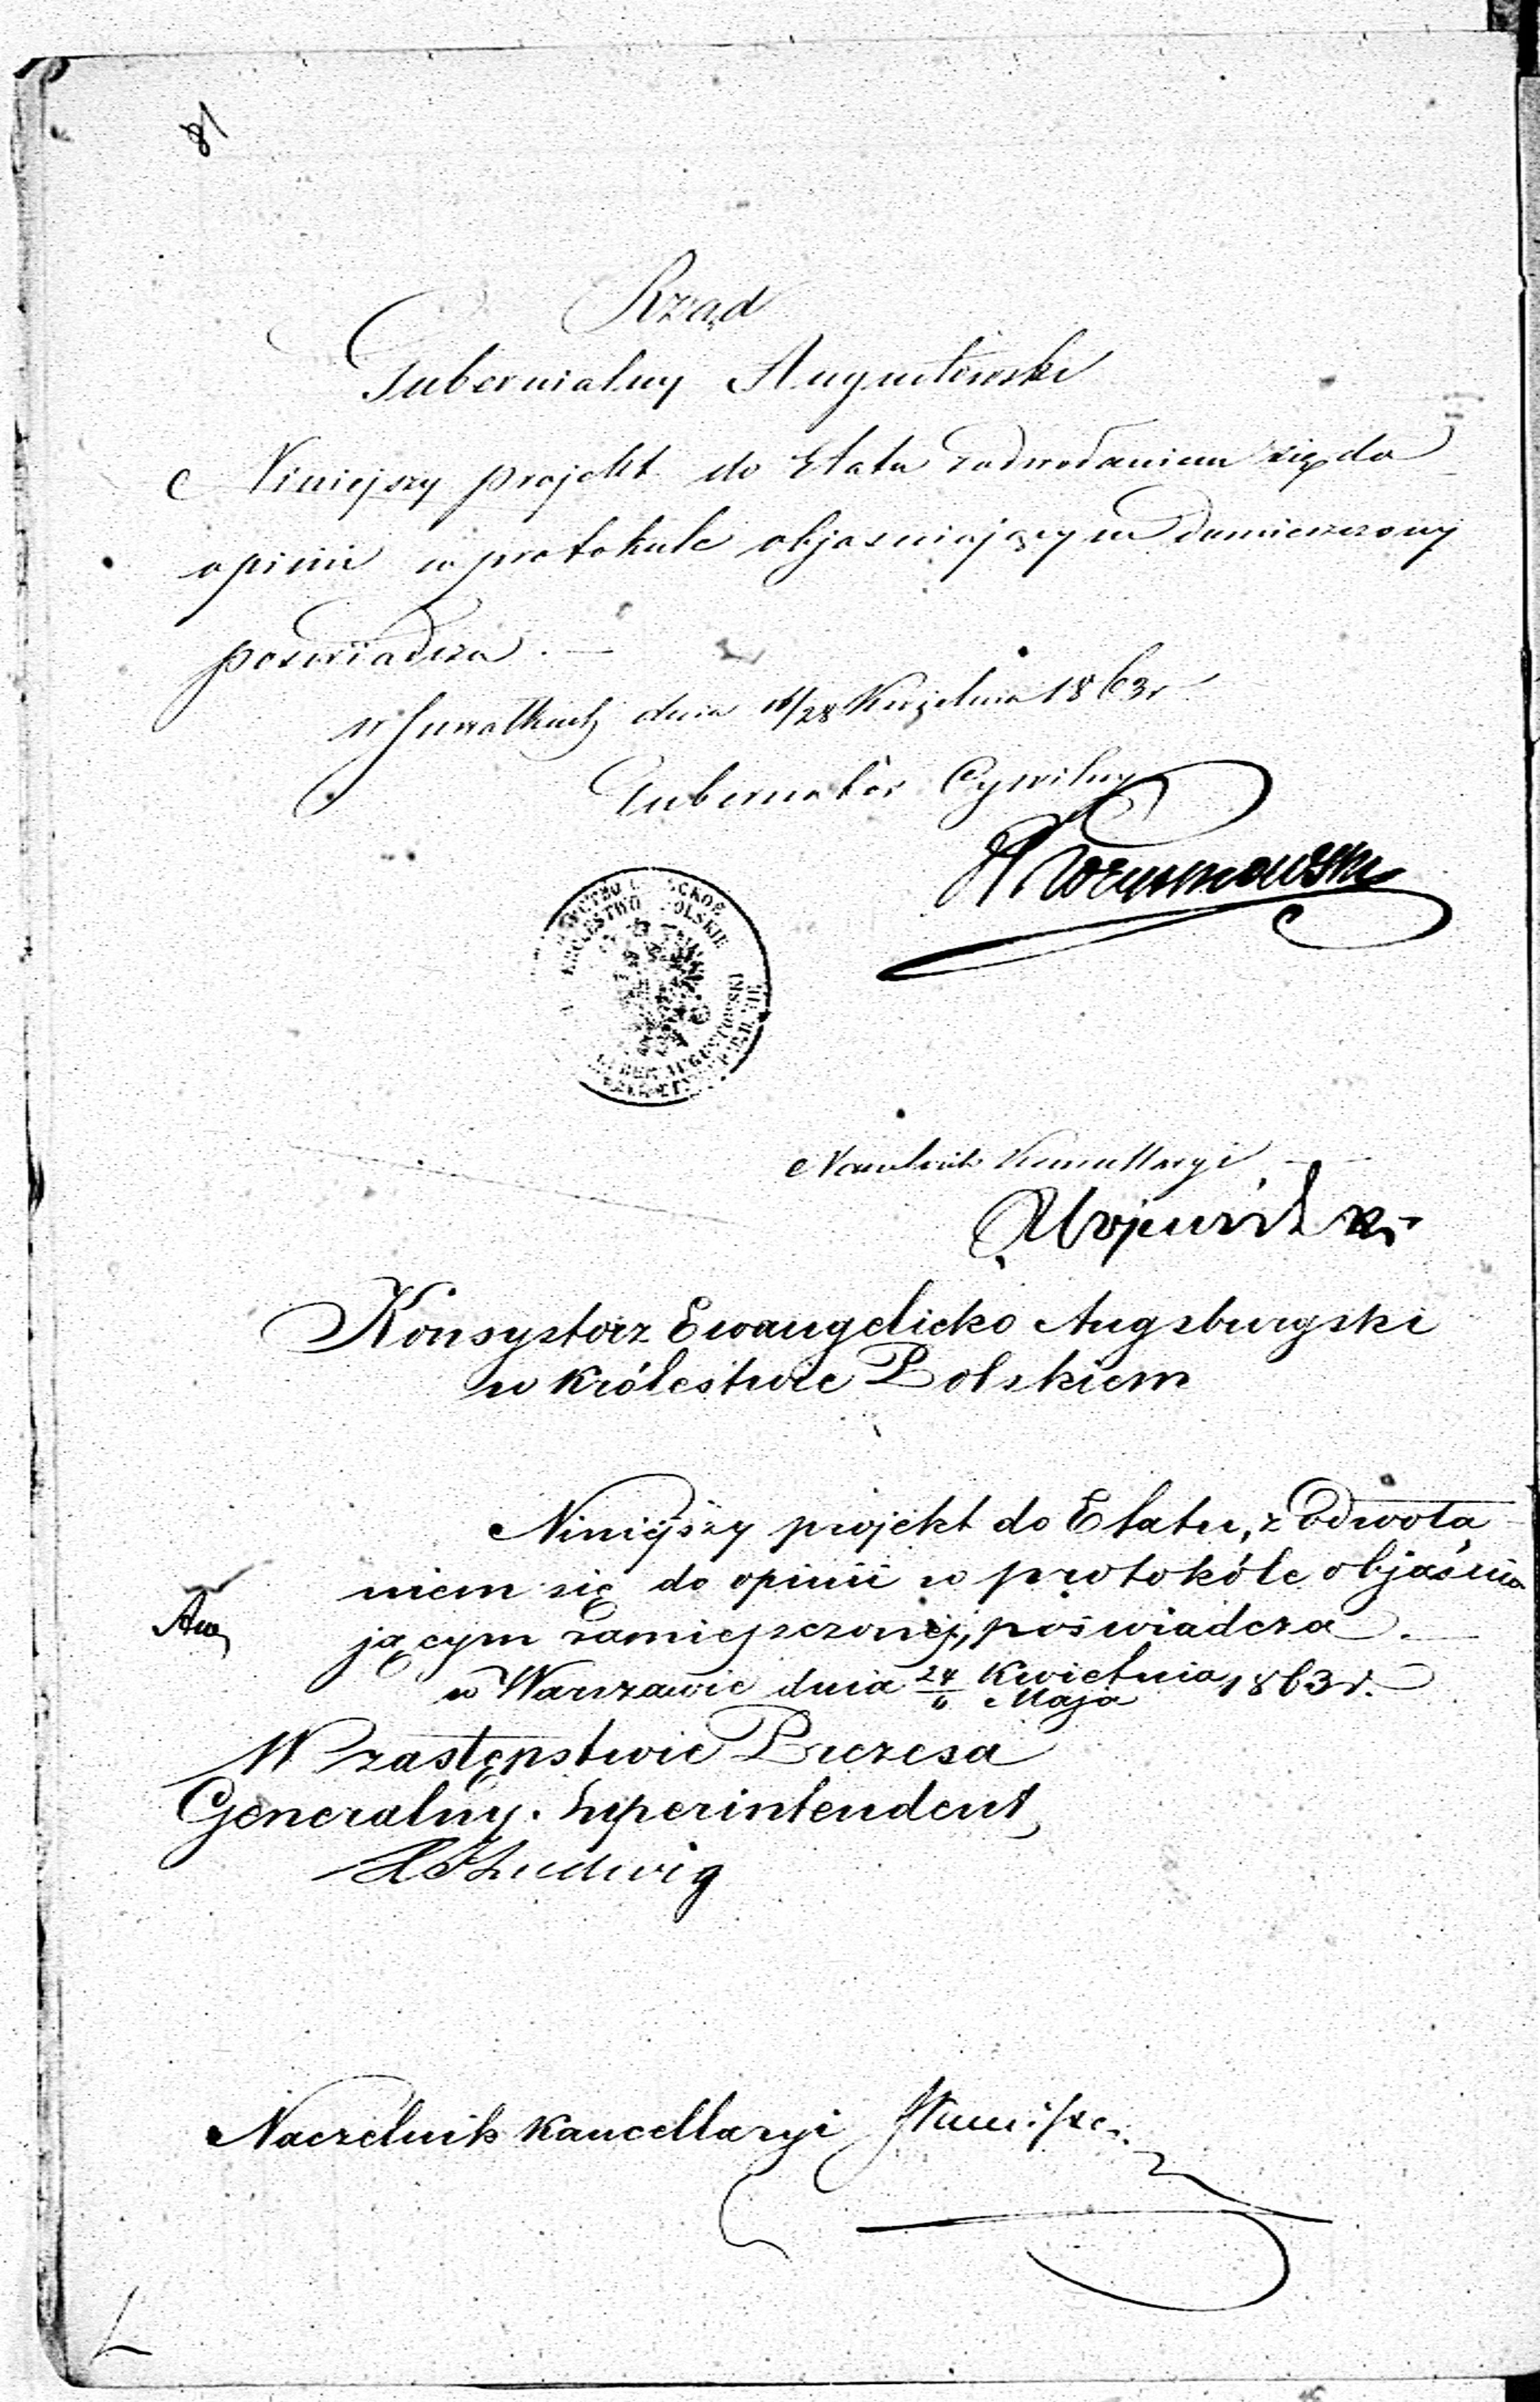 81
Rząd
Gubernialny Augustowski
Niniejszy projekt do Etatu z odwołaniem się do
opinii w protokule objasniającym zamieszczonej
poswiadcza. —
w Suwałkach dnia 16/28 Kwietnia 1863 r
Gubernator Cywilny
KRÓLESTWO POLSKIE
Naczelnik Kancellaryi
Konsystorz Ewangelicko Augsburgski
w Królestwie Polskiem
Niniejszy projekt do Etatu, z Odwoła
niem się do opinii w protokóle objaśnia
jącym zamieszczonej, poświadcza. —
w Warszawie dnia 24/6 Kwietnia/Maja 1863 r.
W zastępstwie Prezesa
Generalny Superintendent
Ludwig
Naczelnik Kancellaryi